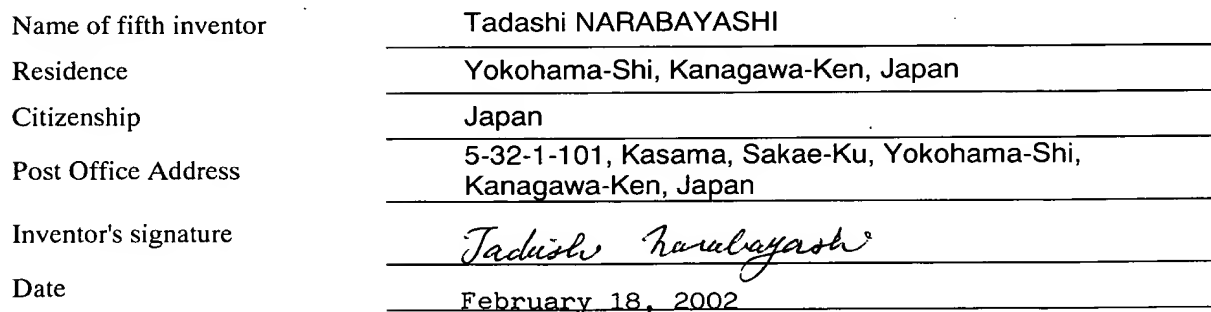 Name of fifth inventor Tadashi NARABAYASHI
Residence Yokohama-Shi, Kanagawa-Ken, Japan
Citizenship Japan
Post Office Address 5-32-1-101, Kasama, Sakae-Ku, Yokohama-Shi,
Kanagawa-Ken, Japan
Inventor's signature Tadashi Narabayashi
Date February 18, 2002